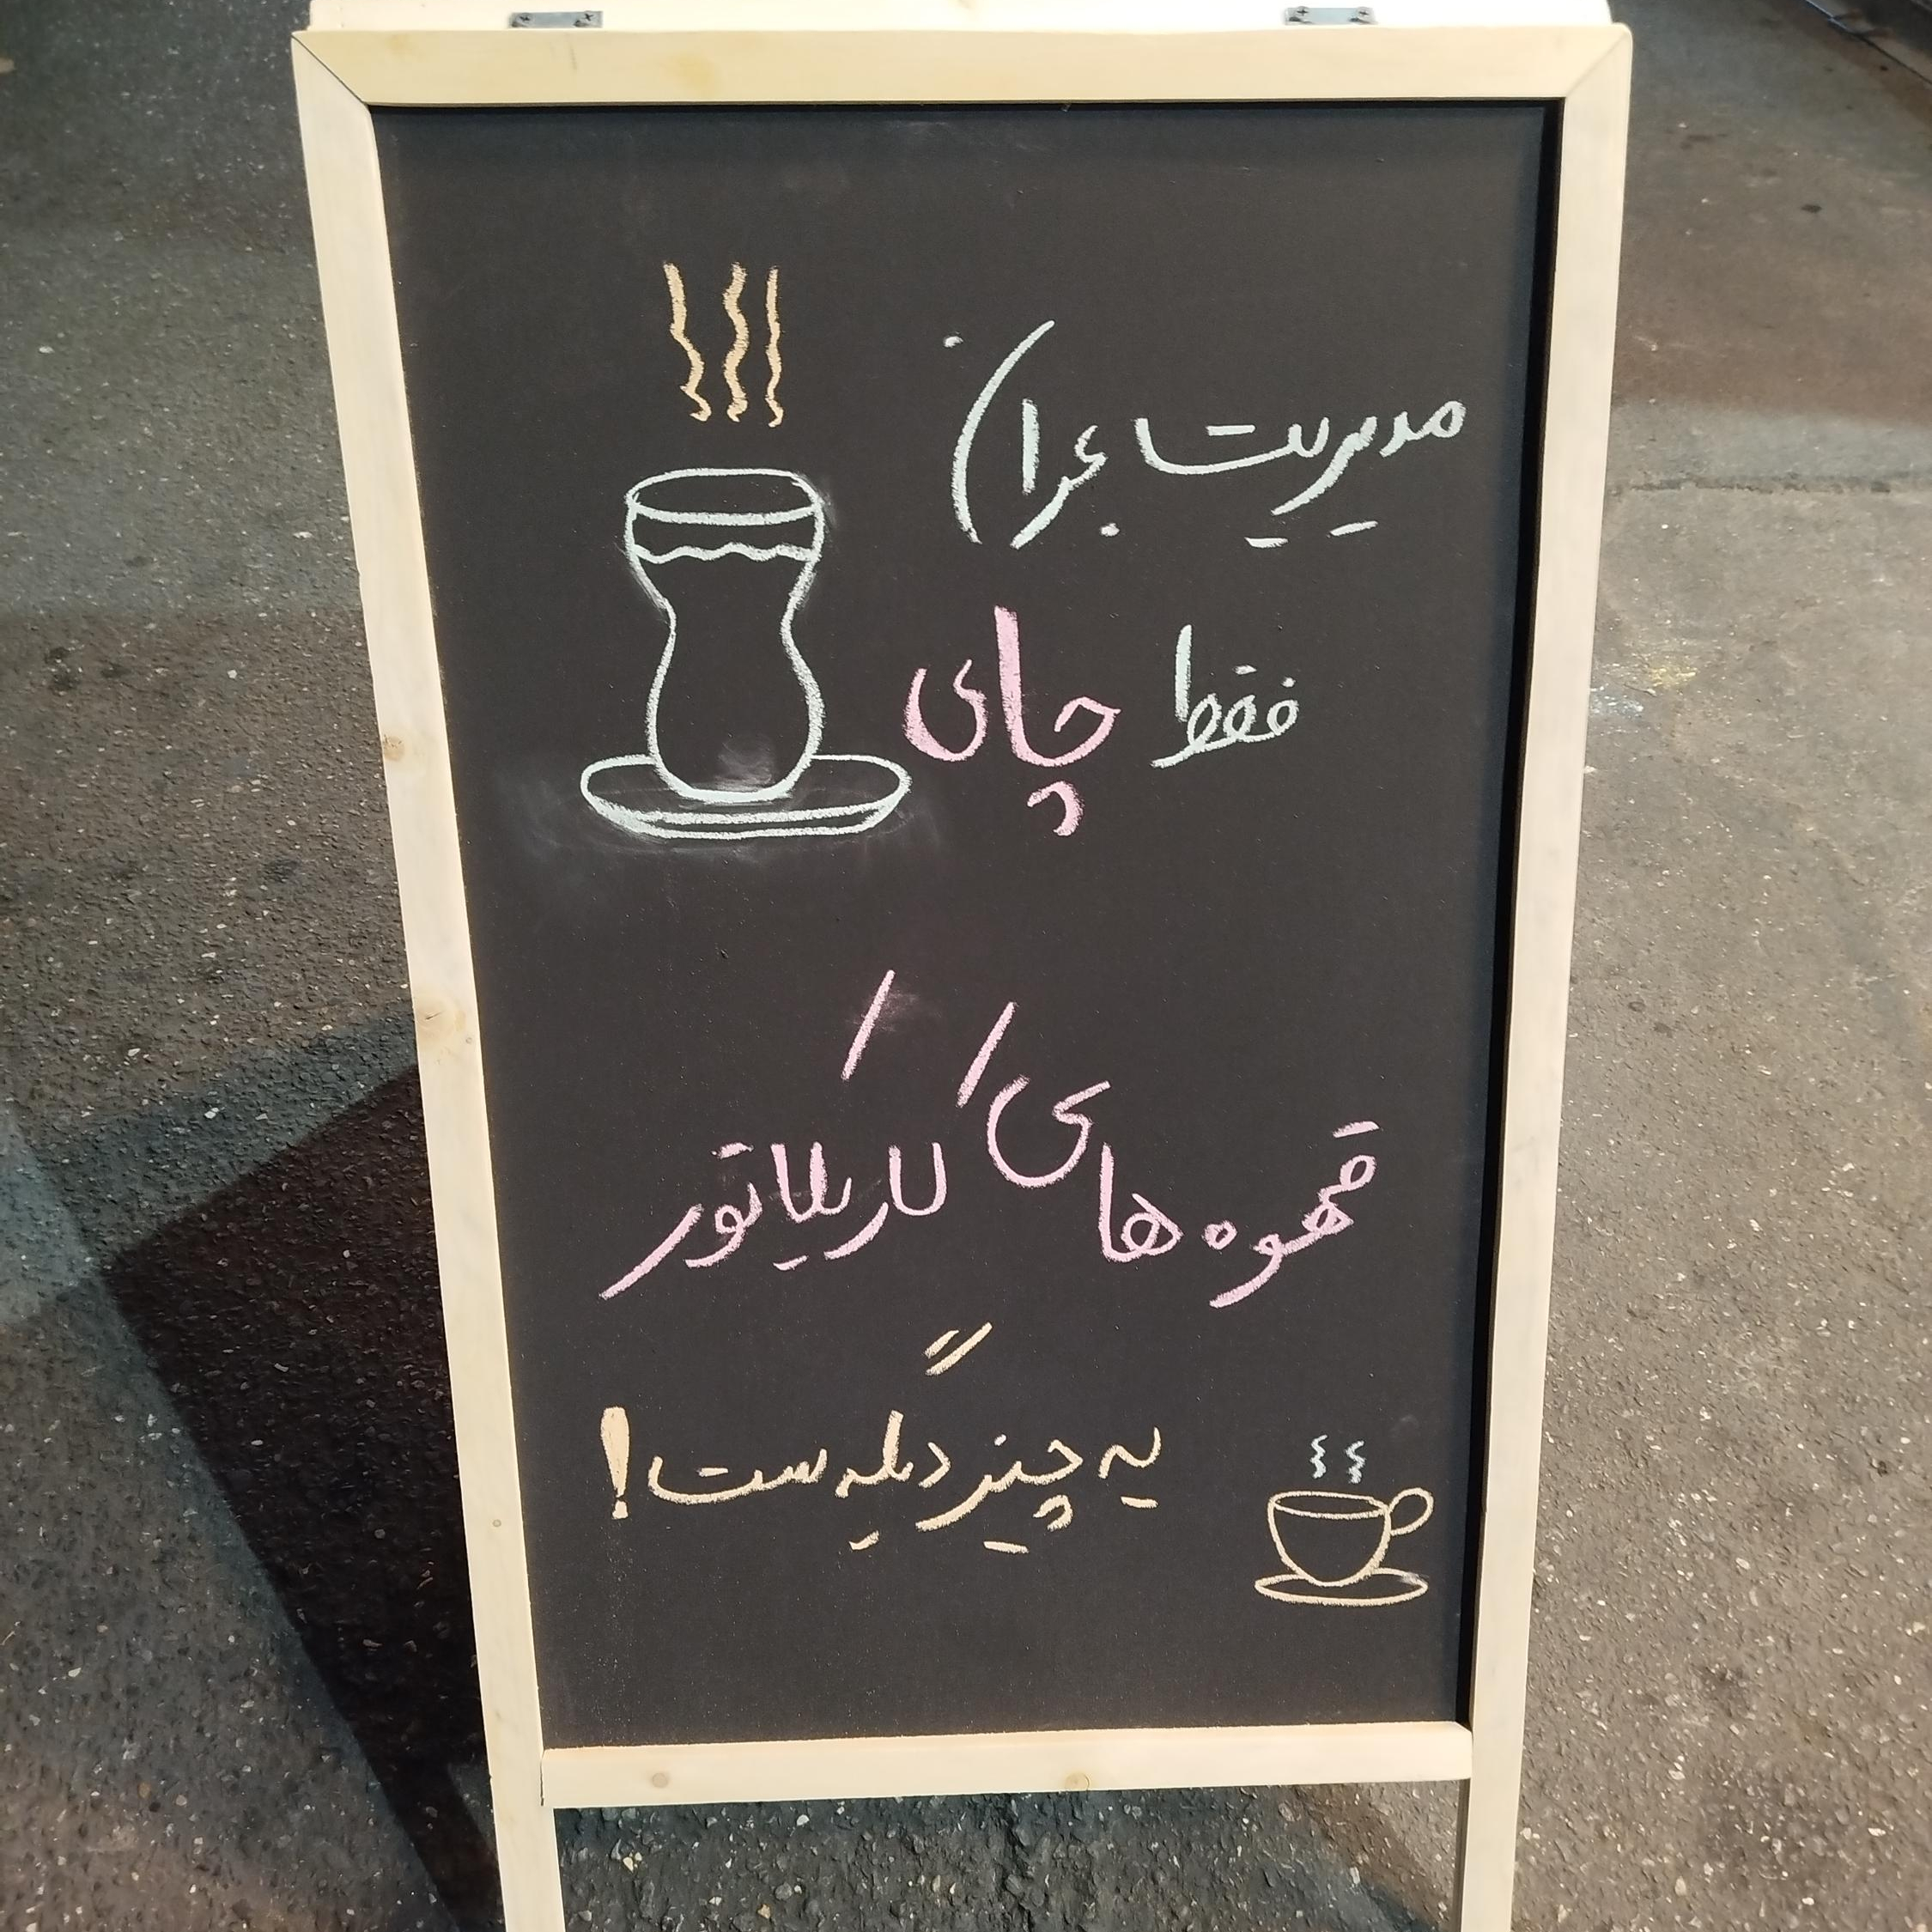 مدیریت بحران
فقط چای
قهوه های کاریکاتور
یه چیز دیگه ست!